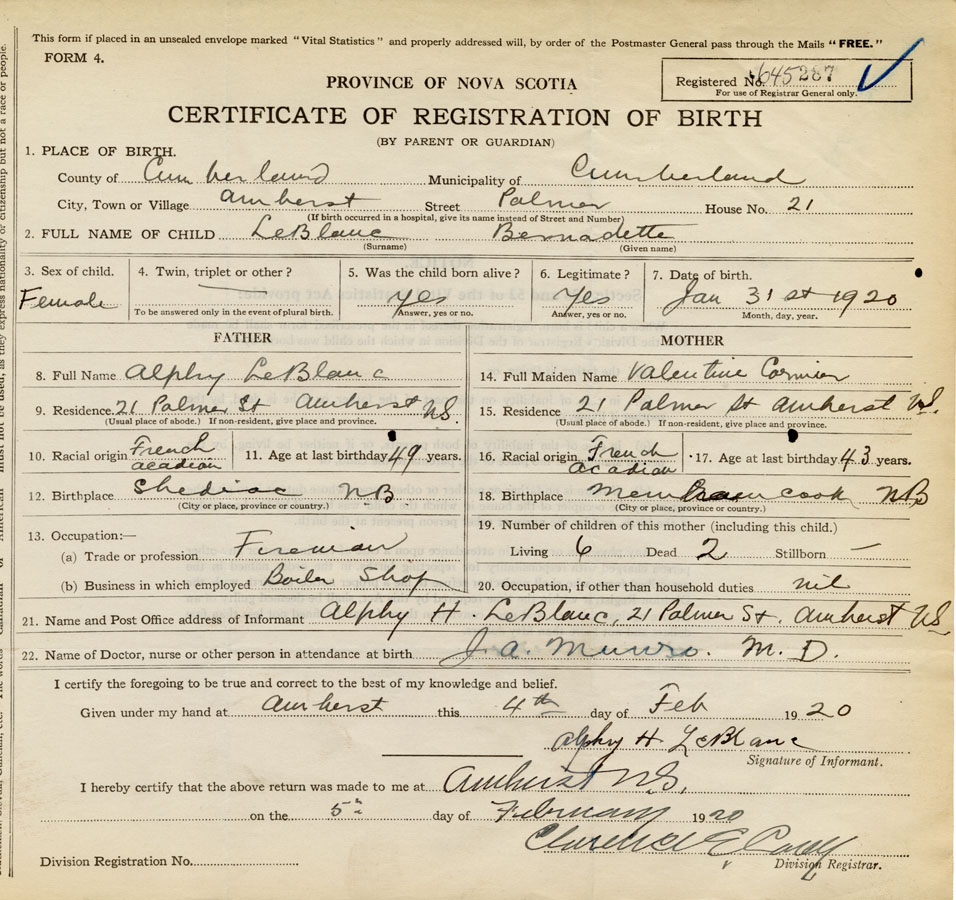 This form if placed in an unsealed envelope marked "Vital Statistics" and properly addressed will, by order of the Postmaster General pass through the Mails "FREE."
FORM 4.
Registered No. 645287
For use of Registrar General only.
PROVINCE OF NOVA SCOTIA
CERTIFICATE OF REGISTRATION OF BIRTH
(BY PARENT OR GUARDIAN)
1. PLACE OF BIRTH.
County of Cumberland Municipality of Cumberland
City, Town or Village Amherst Street Palmer House No. 21
(If birth occurred in a hospital, give its name instead of Street and Number)
2. FULL NAME OF CHILD LeBlanc Bernadette
(Surname) (Given name)
3. Sex of child. 4. Twin, triplet or other? 5. Was the child born alive? 6. Legitimate? 7. Date of birth.
Female — Yes Yes Jan 31st 1920
To be answered only in the event of plural birth. Answer, yes or no. Answer, yes or no. Month, day, year.
FATHER
8. Full Name Alphy LeBlanc
9. Residence. 21 Palmer St Amherst NS.
(Usual place of abode.) If non-resident, give place and province.
10. Racial origin French Acadian 11. Age at last birthday 49 years.
12. Birthplace Shediac NB
(City or place, province or country.)
13. Occupation:—
(a) Trade or profession Fireman
(b) Business in which employed Boiler Shop
MOTHER
14. Full Maiden Name Valentine Cormier
15. Residence 21 Palmer St Amherst NS.
(Usual place of abode.) If non-resident, give place and province.
16. Racial origin French Acadian 17. Age at last birthday 43 years.
18. Birthplace Memramcook NB
(City or place, province or country.)
19. Number of children of this mother (including this child.)
Living 6 Dead 2 Stillborn —
20. Occupation, if other than household duties nil
21. Name and Post Office address of Informant Alphy H. LeBlanc, 21 Palmer St. Amherst NS.
22. Name of Doctor, nurse or other person in attendance at birth. J. A. Munro. M. D.
I certify the foregoing to be true and correct to the best of my knowledge and belief.
Given under my hand at Amherst this 4th day of Feb 1920
Alphy H LeBlanc
Signature of Informant.
I hereby certify that the above return was made to me at Amherst N.S.
on the 5th day of February 1920
Clarence E
Division Registrar.
Division Registration No.